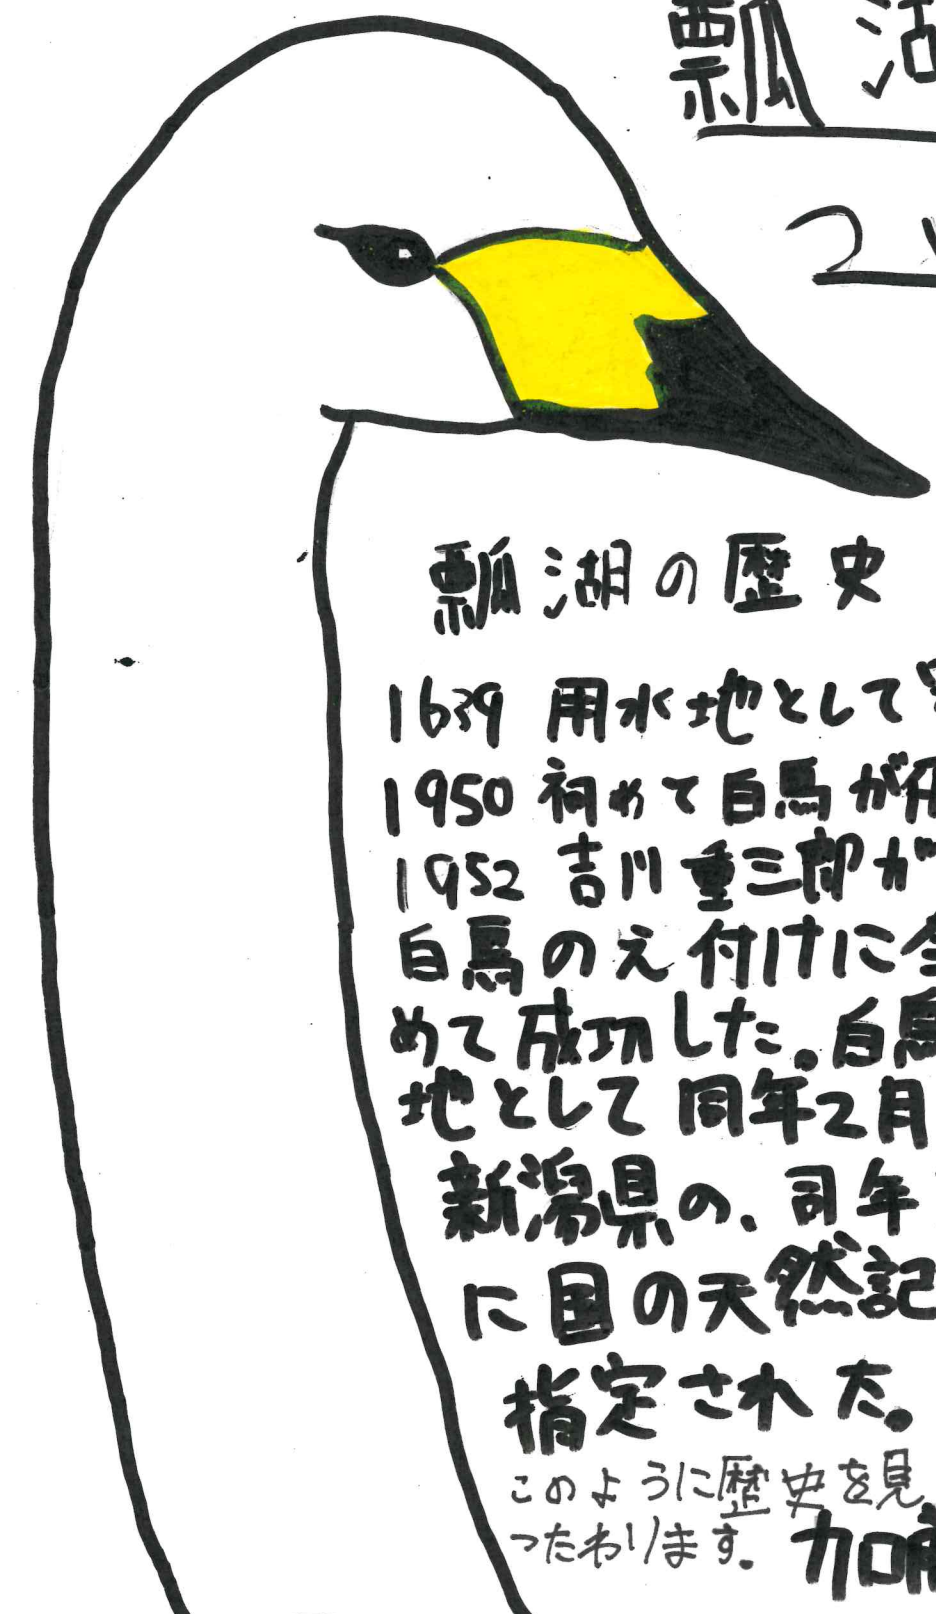 瓢湖
瓢湖の歴史
1639 用水地として
1950 初めて白鳥が
1952 吉川重三郎が
白鳥のえ付けに
めて成功した。白鳥
地として同年2月
新潟県の、司年
に国の天然記
指定された。
このように歴史を見
つたわります。